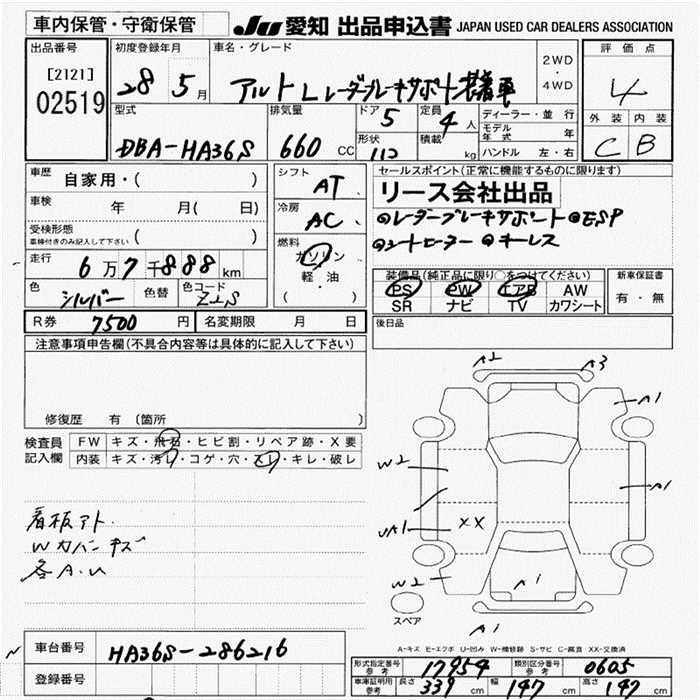 車内保管・守衛保管
JU 愛知 出品申込書 JAPAN USED CAR DEALERS ASSOCIATION
出品番号
[2121]
02519
初度登録年月
28 5月
車名・グレード
アルト L レーダーブレーキサポート装着車
2WD
・
4WD
評価点
4
外装 内装
C B
型式
DBA-HA36S
排気量
660 CC
ドア 5
形状
定員 4 人
積載 kg
ディーラー・並行
モデル年式 年
ハンドル 左・右
車歴 自家用・( )
車検 年 月( 日)
受検形態
車検付きのみ記入して下さい ( )
走行 6万7千888km
色 シルバー 色替 色コード Z2S
シフト AT
冷房 AC
燃料
ガソリン
軽・油
( )
セールスポイント(正常に機能するものに限ります)
リース会社出品
◎レーダーブレーキサポート◎ESP
◎シートヒーター ◎キーレス
装備品(純正品に限り○をつけてください)
PS PW エアB AW
SR ナビ TV カワシート
新車保証書
有・無
R券 7500 円 名変期限 月 日
後日品
注意事項申告欄(不具合内容等は具体的に記入して下さい)
修復歴 有 〔箇所 〕
検査員記入欄
FW キズ・飛石・ヒビ割・リペア跡・X要
内装 キズ・汚レ・コゲ・穴・スレ・キレ・破レ
看板アト.
Wカバーキズ
各A.U
A2 A3
A1
W2
A1
UA1
XX
W2
A1
A1
スペア
A-キズ E-エクボ U-凹み W-補修跡 S-サビ C-腐食 XX-交換済
車台番号 HA36S-286216
登録番号
形式指定番号 参考 17954 類別区分番号 参考 0605
車庫証明用 参考 長さ 339 cm 幅 147 cm 高さ 147 cm